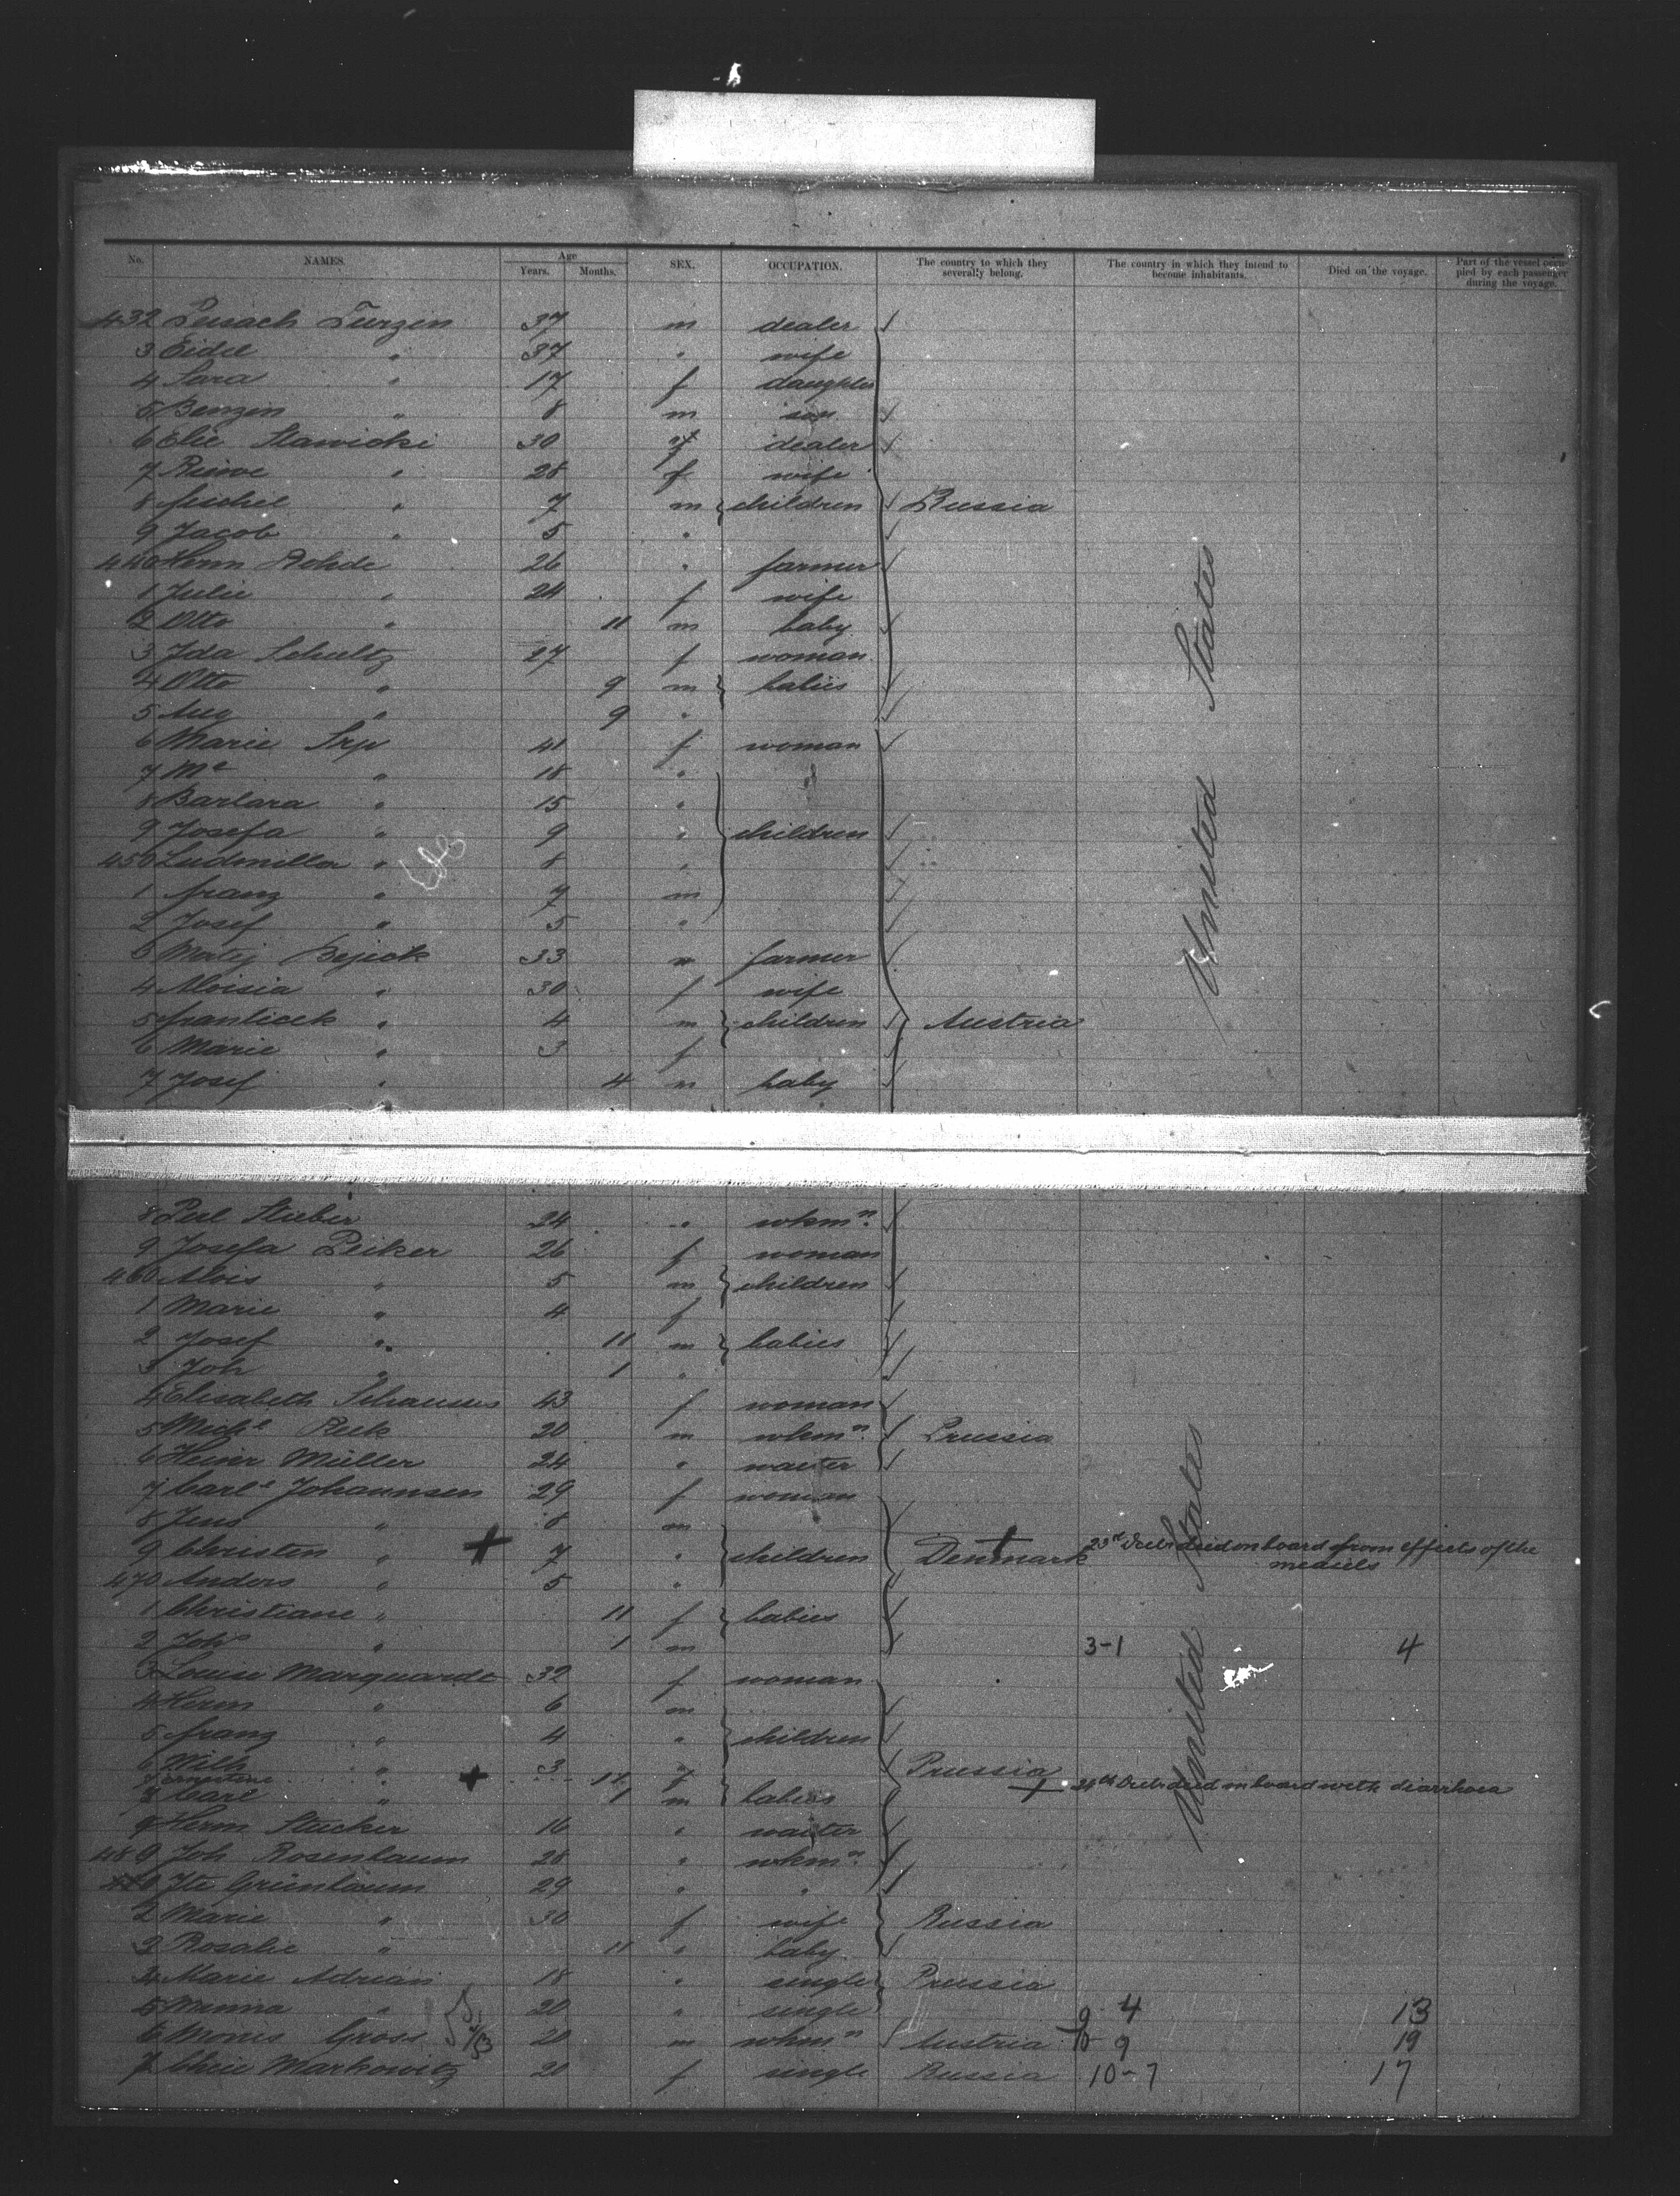 No. NAMES. Age Years. Months. SEX. OCCUPATION. The country to which they severally belong. The country in which they intend to become inhabitants. Died on the voyage. Part of the vessel occupied by each passenger during the voyage.
432 37 m dealer
3 Eidel " 37 " wife
4 Sara " 17 f daughter
5 Benzin " 8 m son
6 Elie Stawicki 30 dealer
7 " 28 f wife
8 " 7 m children Russia
9 Jacob " 5 "
440 Herm Rohde 26 " farmer
1 Julie " 24 f wife
2 Otto " 11 m baby
3 Ida Schultz 27 f woman
4 Otto " 9 m babies
5 Aug " 9 "
6 Marie Srp 41 f woman
7 Me " 18 "
8 Barbara " 15 "
9 Josefa " 9 " children
450 Ludmilla " 8 "
1 Franz " 7 m
2 Josef " 5 "
3 Matij 33 m farmer
4 Aloisia " 30 f wife
5 Franticek " 4 m children Austria
6 Marie " 3 f
7 Josef " 4 m baby
United States
8 Stieber 24 " wkmn.
9 Josefa Peiker 26 f woman
460 Alois " 5 m children
1 Marie " 4 f
2 Josef " 11 m babies
3 Joh " 1 "
4 Elisabeth 43 f woman
5 Michl 20 m wkmn. Prussia
6 Heinr Müller 24 " waiter
7 Carle Johannsen 29 f woman
8 Jens " 8 m
9 Christen " + 7 " children Denmark + 23rd died on board from effects of the measels
470 Anders " 5 "
1 Christiane " 11 f babies
2 Joh " 1 m 3-1 4
3 Louise Marquardt 32 f woman
4 Herm " 6 m
5 Franz " 4 " children
6 Wilh " 3 " Prussia
7 Ernestine " + 11 f + 24th died on board with diarrhoea
8 Carl " 1 m babies
9 Herm Stucker 16 " waiter
480 Joh Rosenbaum 28 " wkmn.
1 Grünbaum 29 " "
2 Marie " 30 f wife Russia
3 Rosalie " 11 " baby
4 Marie Adrian 18 " single Prussia
5 Minna " 20 " single 9 4 13
6 Moris Gross 20 m wkmn Austria 10 9 19
7 Markowitz 20 f single Russia 10-7 17
United States